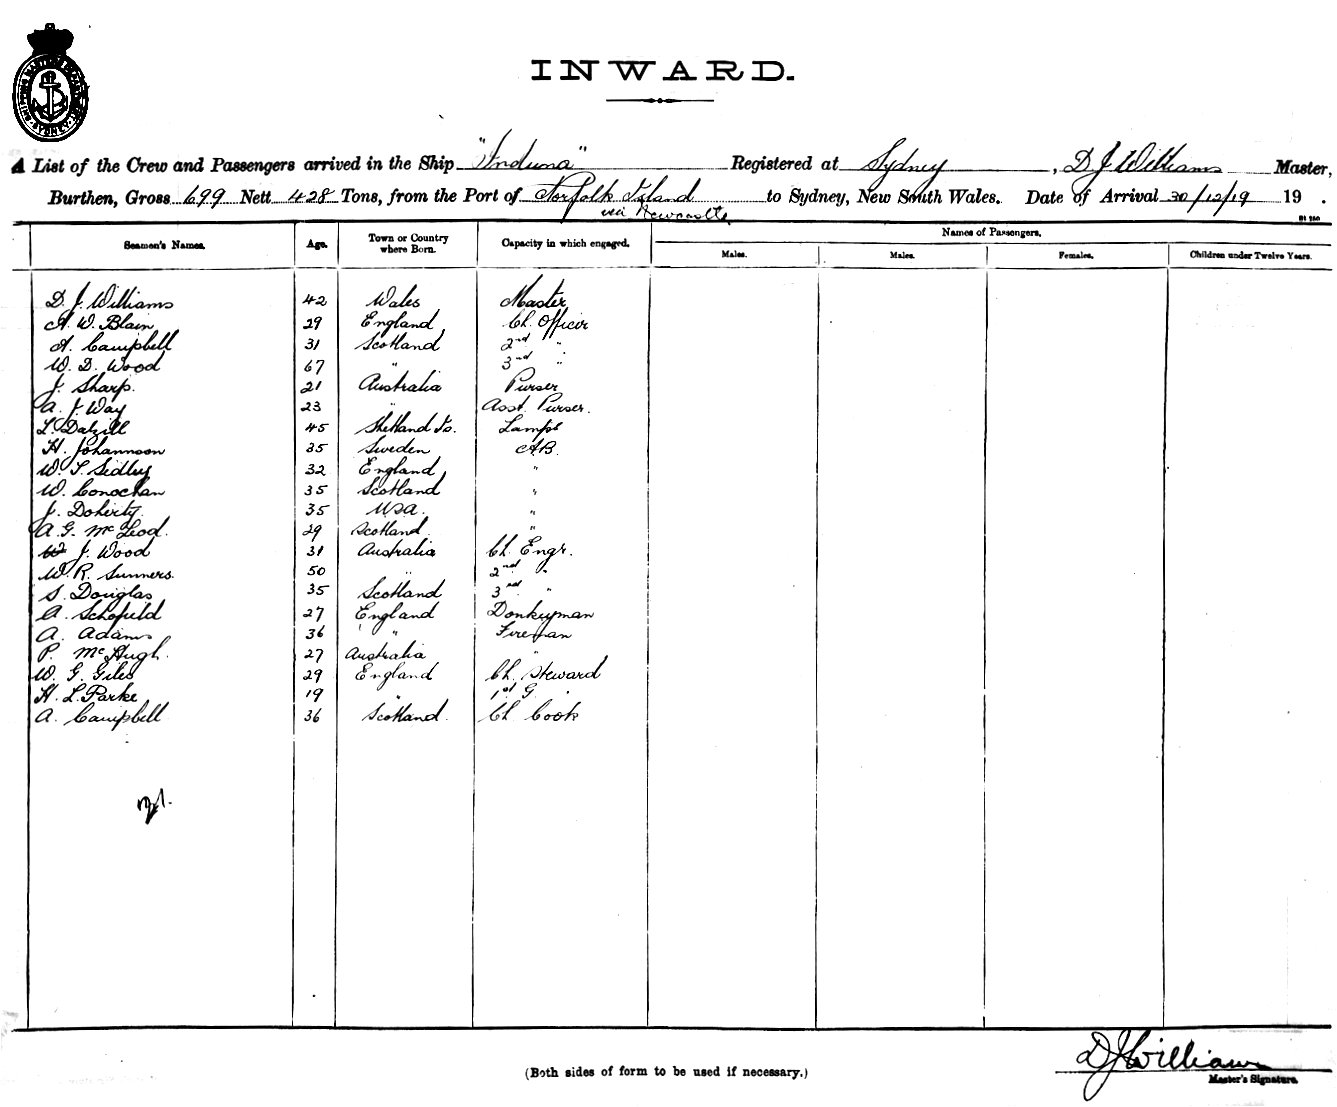 SHIPPING MASTER'S OFFICE · SYDNEY ·
INWARD.
A List of the Crew and Passengers arrived in the Ship "Induna" Registered at Sydney, D J Williams Master,
Burthen, Gross 699 Nett 428 Tons, from the Port of Norfolk Island to Sydney, New South Wales. Date of Arrival 30/12/19 19 .
via Newcastle
Seamen's Names. Age. Town or Country where Born. Capacity in which engaged. Names of Passengers.
Males. Males. Females. Children under Twelve Years.
D. J. Williams 42 Wales Master
A. W. Blain 29 England Ch. Officer
A. Campbell 31 Scotland 2nd "
W. D. Wood 67 " 3rd "
J. Sharp. 21 Australia Purser
A. J. Way 23 " Asst. Purser.
L. Dalzill 45 Shetland Is. Lamps
H. Johannson 35 Sweden AB.
W. T. Sidley 32 England "
W. Conochan 35 Scotland "
J. Doherty. 35 USA. "
A. G. McLeod. 29 Scotland. "
J. Wood 31 Australia Ch. Engr.
W. R. Sunners. 50 " 2nd "
S. Douglas 35 Scotland 3rd "
A. Schofield 27 England Donkeyman
A. Adams 36 " Fireman
P. McHugh. 27 Australia "
W. G. Giles 29 England Ch. Steward
H. L. Parke 19 " 1st G "
A. Campbell 36 Scotland. Ch Cook
D J Williams
Master's Signature.
(Both sides of form to be used if necessary.)